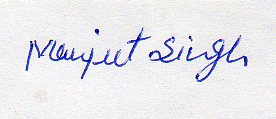 Manjeet Singh